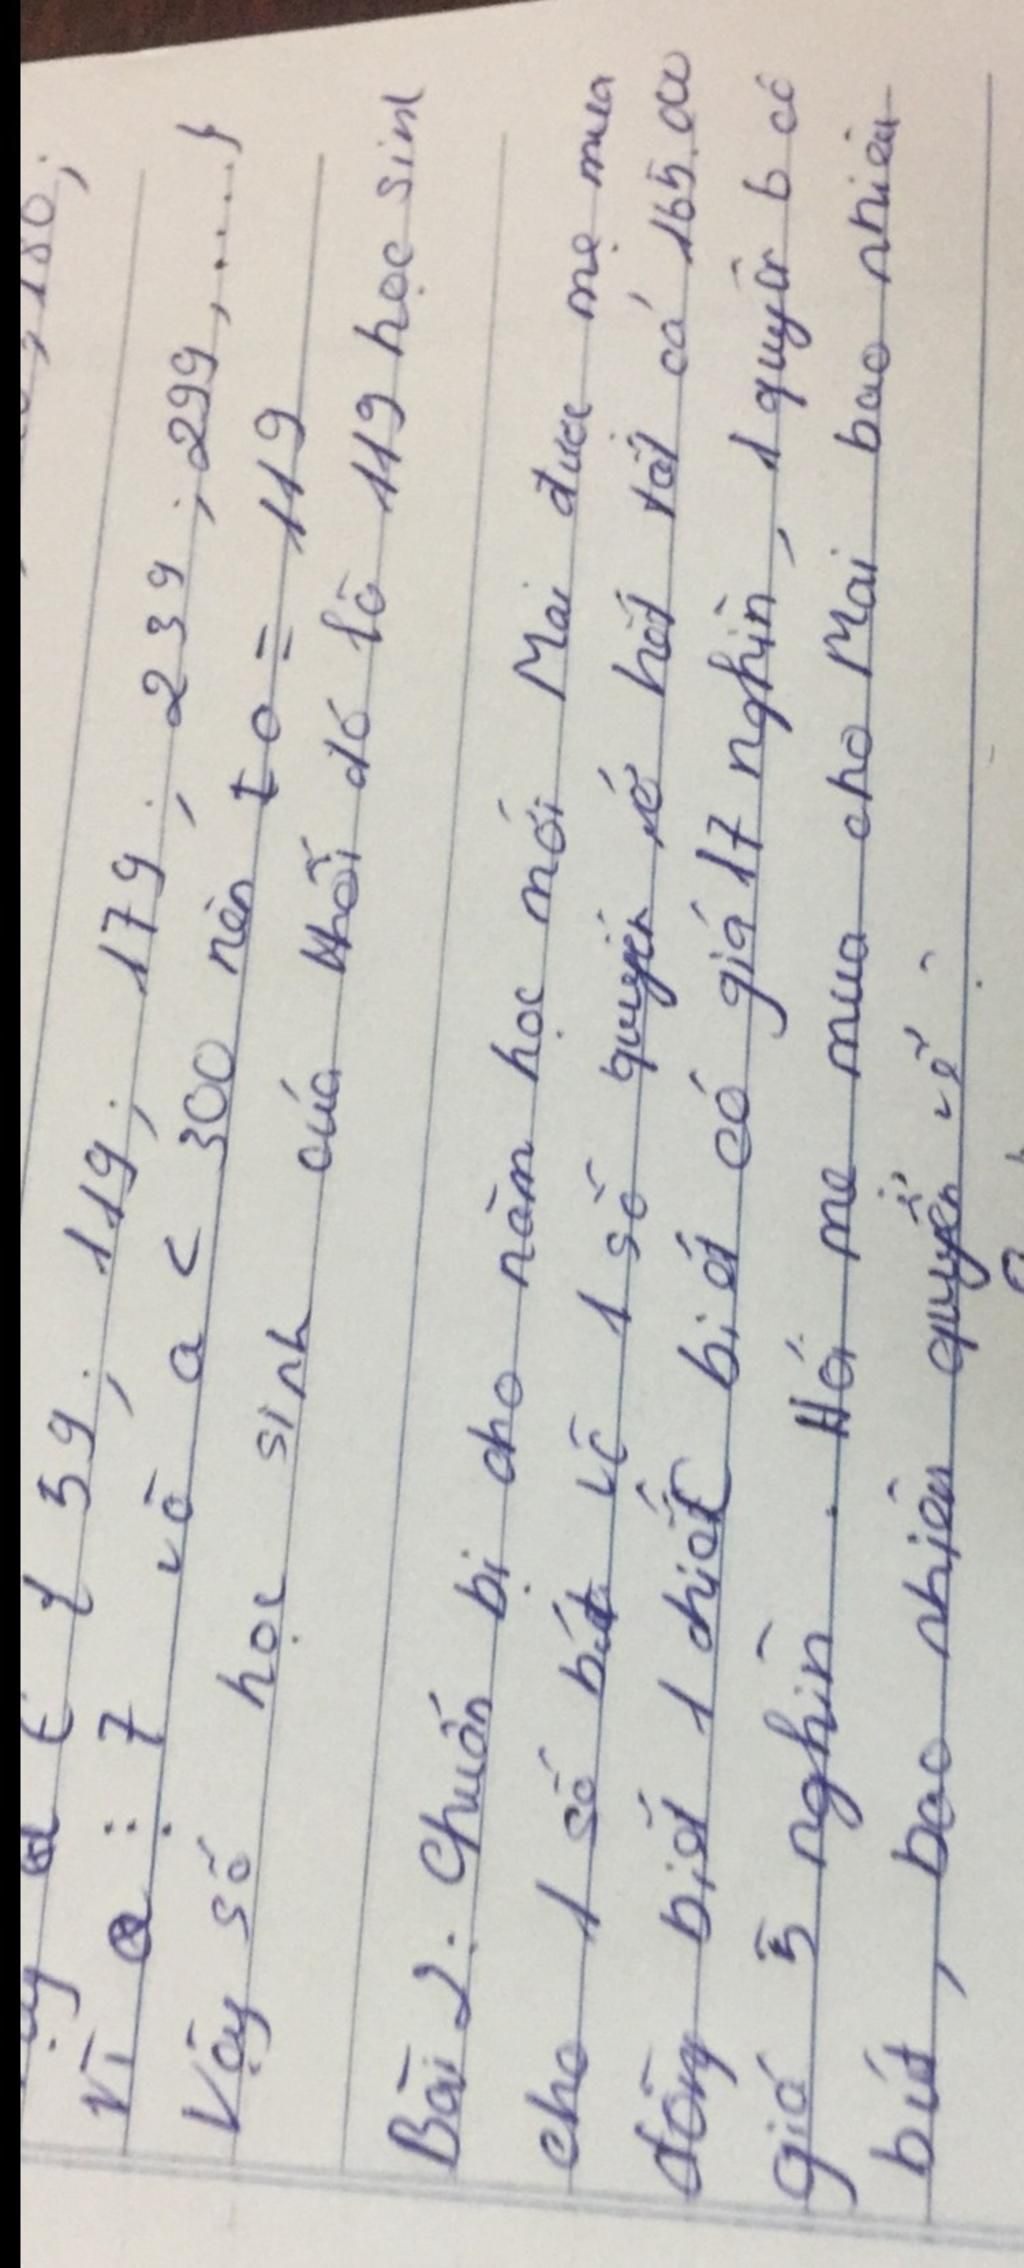 180;
{59; 119; 179; 239; 299,....}
Vì a ⋮ 7 và a < 300 nên to = 119
Vậy số học sinh của khối đó là 119 học sinh
Bài 2: Chuẩn bị cho năm học mới Mai được mẹ mua
cho 1 số bút và 1 số quyển vở hết tất cả 165.00
đồng biết 1 chiếc bút có giá 17 nghìn, 1 quyển b có
giá 5 nghìn. Hỏi mẹ mua cho Mai bao nhiêu
bút, bao nhiêu quyển vở?